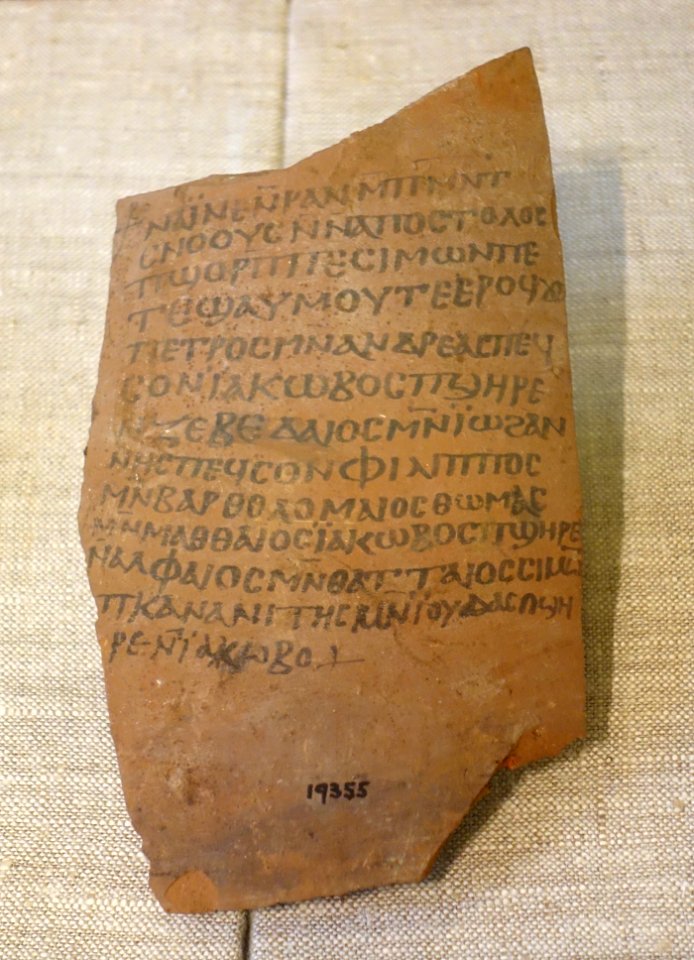 ⲛⲁⲓ̈ⲛⲉⲛ̄ⲣⲁⲛⲙ̄ⲡⲙⲛ̄ⲧ
ⲥⲛⲟⲟⲩⲥⲛ̄ⲛⲁⲡⲟⲥⲧⲟⲗⲟⲥ
ⲡϣⲟⲣⲡ̄ⲡⲉⲥⲓⲙⲱⲛⲡⲉ
ⲧⲉϣⲁⲩⲙⲟⲩⲧⲉⲉⲣⲟϥϫⲉ
ⲡⲉⲧⲣⲟⲥⲙⲛⲁⲛⲇⲣⲉⲁⲥⲡⲉϥ
ⲥⲟⲛⲓ̈ⲁⲕⲱⲃⲟⲥⲡϣⲏⲣⲉ
ⲛ̄ⲍⲉⲃⲉⲇⲁⲓⲟⲥⲙⲛ̄ⲓ̈ⲱϩⲁⲛ
ⲛⲏⲥⲡⲉϥⲥⲟⲛⲫⲓⲗⲓⲡⲡⲟⲥ
ⲙⲛ̄ⲃⲁⲣⲑⲟⲗⲟⲙⲁⲓⲟⲥⲑⲱⲙⲁⲥ
ⲙⲛⲙⲁⲑⲑⲁⲓⲟⲥⲓ̈ⲁⲕⲱⲃⲟⲥⲡϣⲏⲣⲉ
ⲛ̄ⲁⲗⲫⲁⲓⲟⲥⲙⲛ̄ⲑⲁⲧⲧⲁⲓⲟⲥⲥⲓⲙⲱ
ⲡⲕⲁⲛⲁⲛⲓⲧⲏⲥⲙⲛ̄ⲓ̈ⲟⲩⲇⲁⲥⲡϣⲏ
ⲣⲉⲛ̄ⲓ̈ⲁⲕⲱⲃⲟ
19355